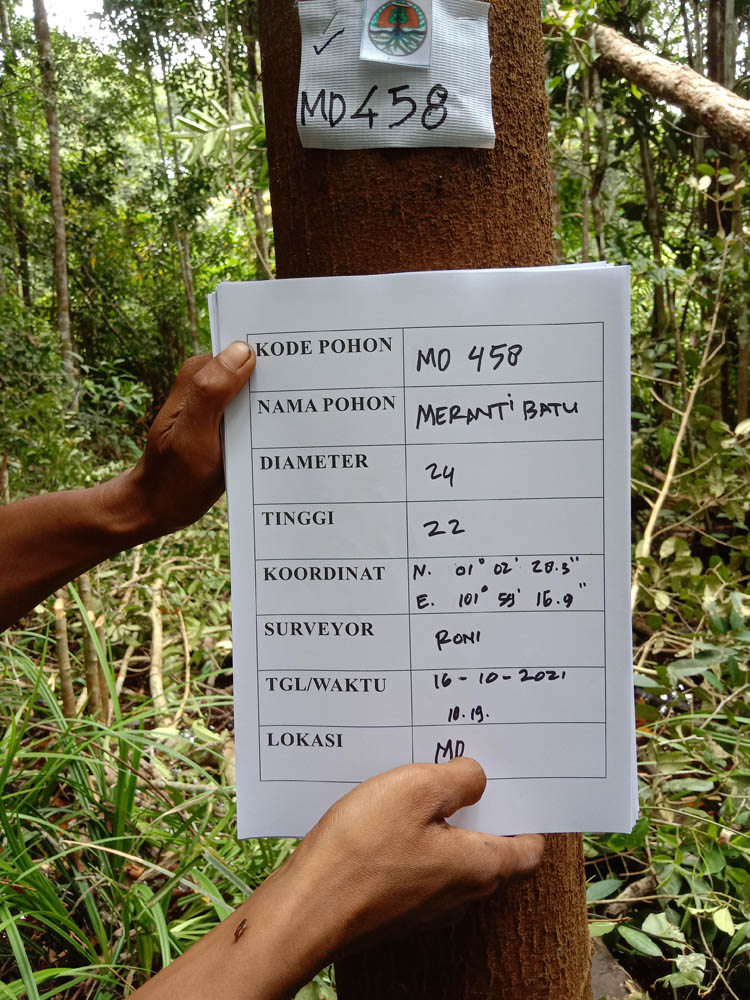 MD458
KODE POHON MD 458
NAMA POHON MERANTi BATU
DIAMETER 24
TINGGI 22
KOORDINAT N. 01° 02' 28.3"
E. 101° 59' 16.9"
SURVEYOR RONI
TGL/WAKTU 16-10-2021
10.19.
LOKASI MD